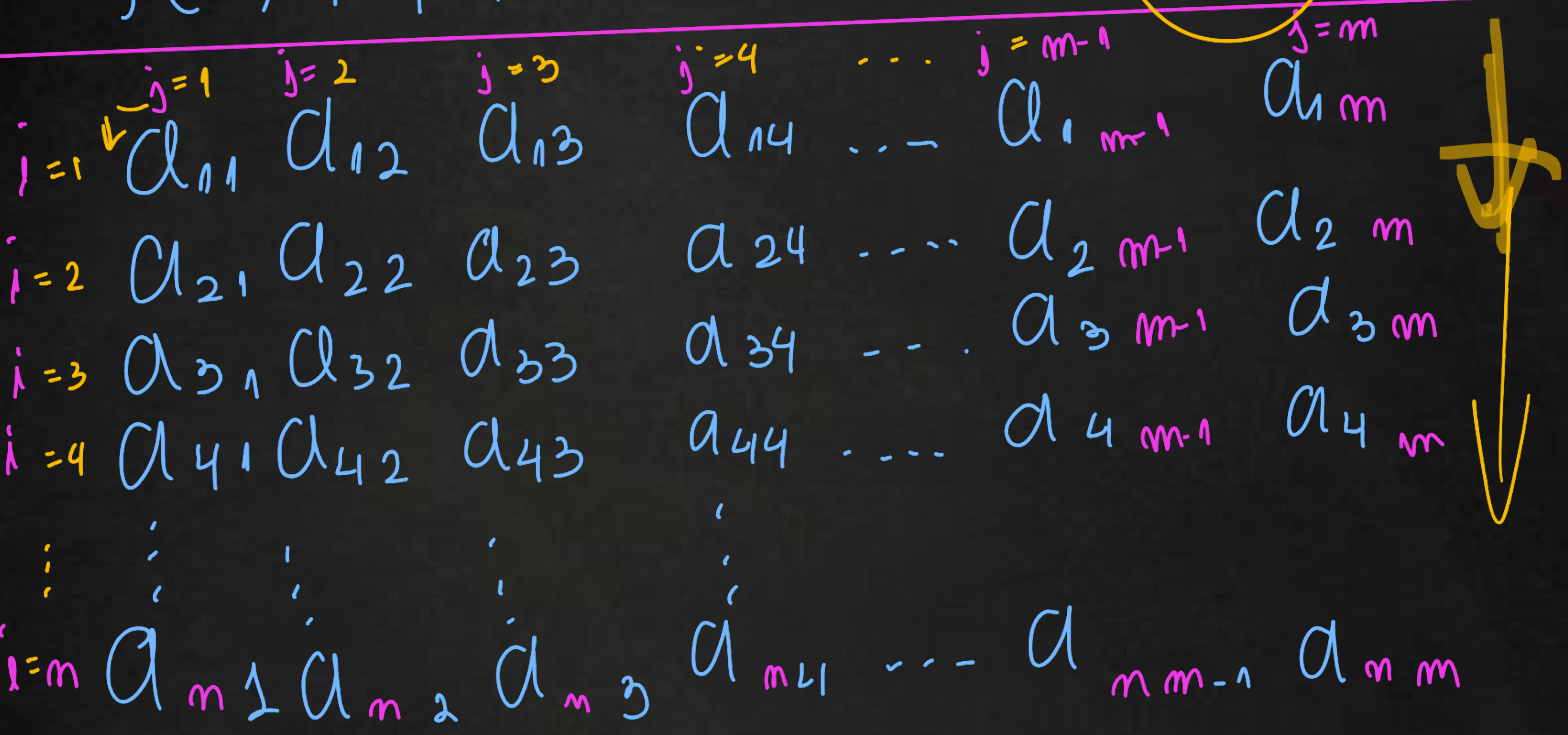 j=1 j=2 j=3 j=4 .... j=m-1 j=m
i=1 a11 a12 a13 a14 .... a1 m-1 a1 m
i=2 a21 a22 a23 a24 .... a2 m-1 a2 m
i=3 a31 a32 a33 a34 .... a3 m-1 a3 m
i=4 a41 a42 a43 a44 .... a4 m-1 a4 m
⋮ ⋮ ⋮ ⋮ ⋮
i=n an1 an2 an3 an4 .... anm-1 anm